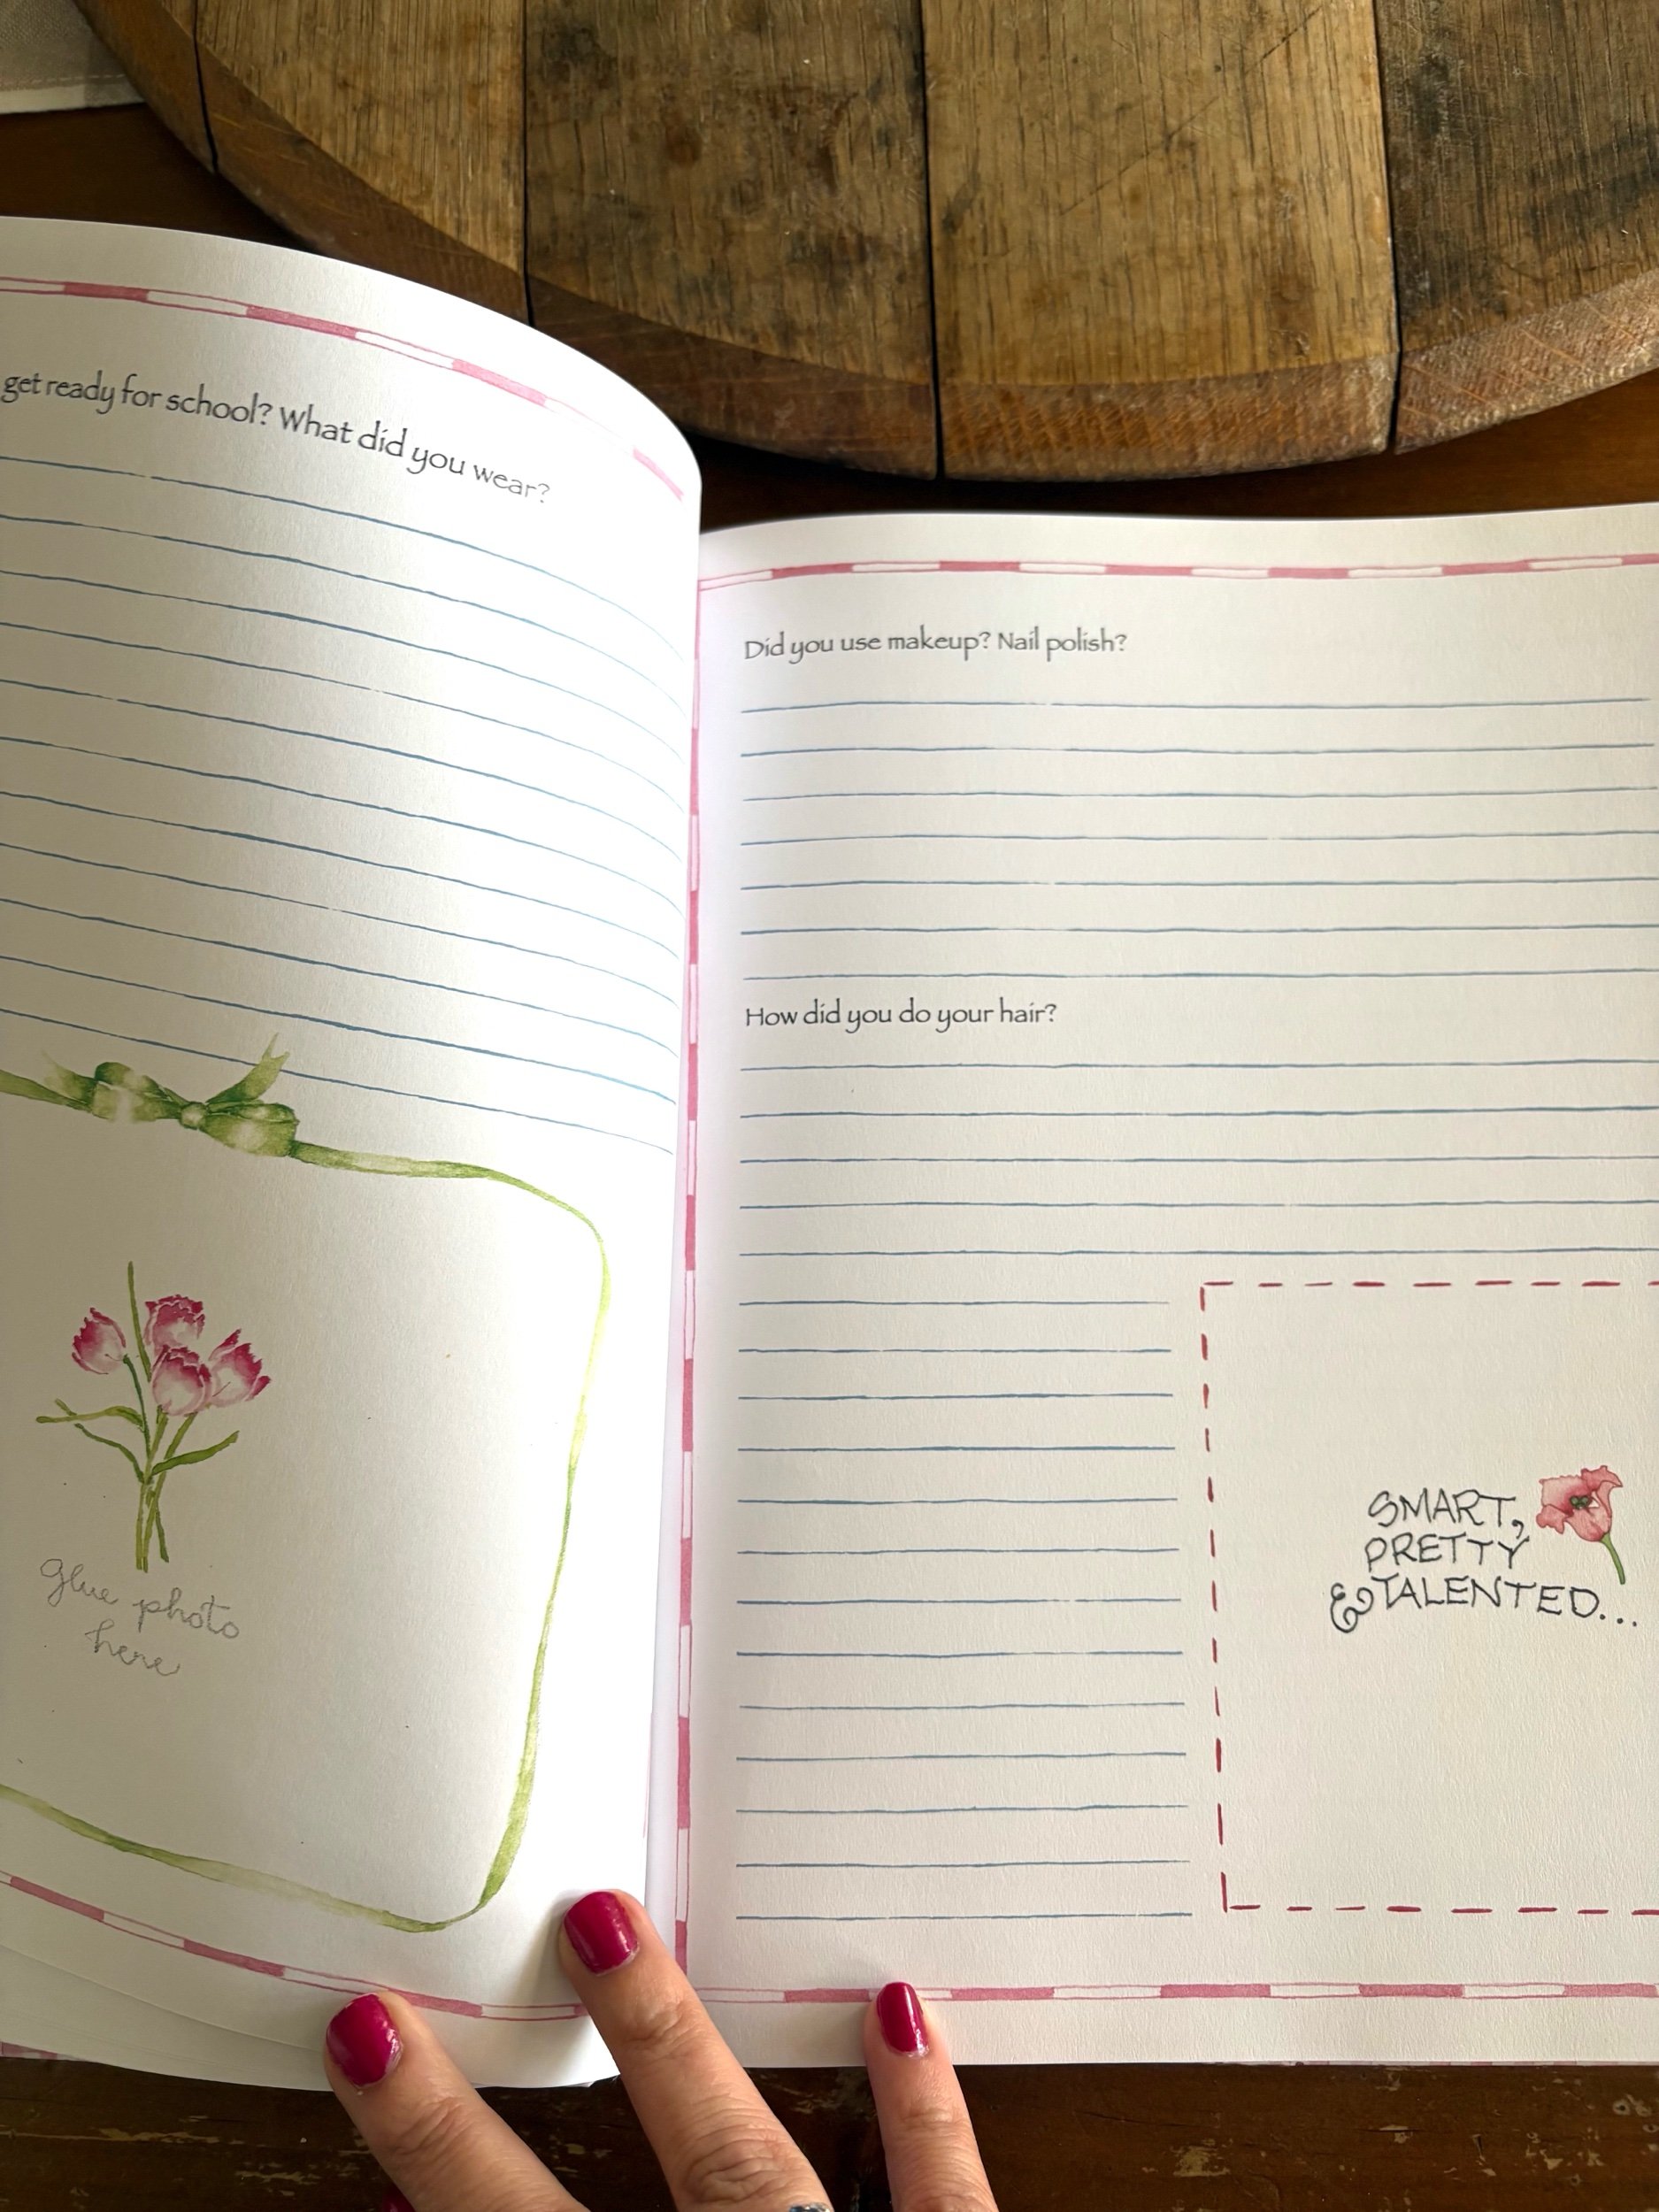 get ready for school? What did you wear?
Glue photo
here
Did you use makeup? Nail polish?
How did you do your hair?
SMART,
PRETTY
& TALENTED...